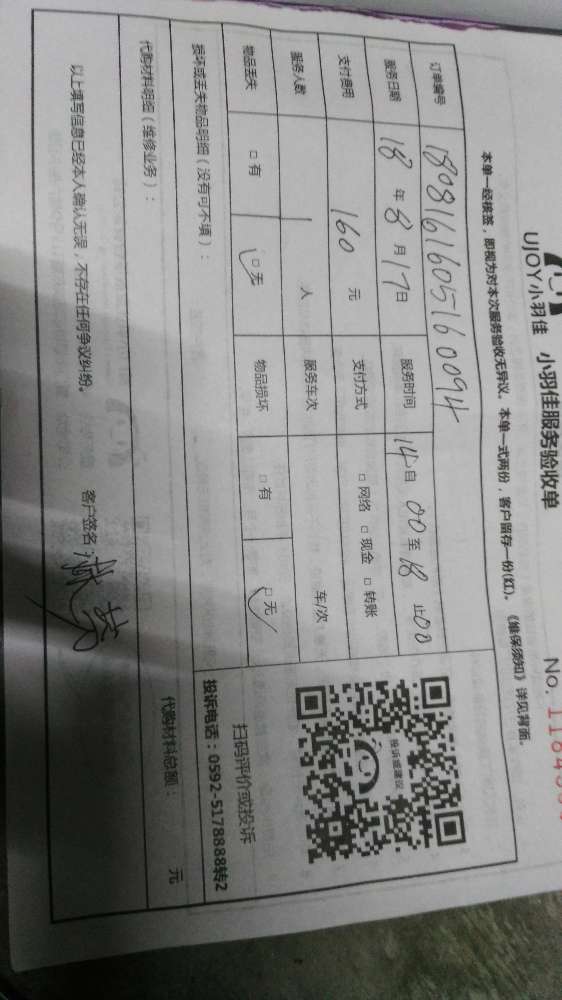 UJOY小羽佳 小羽佳服务验收单
No. 1184
本单一经核签，即视为对本次服务验收无异议。本单一式两份，客户留存一份(红)。《维保须知》详见背面。
订单编号 1808161605160094
服务日期 18 年 8 月 17 日 服务时间 14 自 00 至 18 止 00
支付费用 160 元 支付方式 □ 网络 □ 现金 □ 转账
服务人数 1 人 服务车次 车/次
物品丢失 □ 有 □ 无 物品损坏 □ 有 □ 无
损坏或丢失物品明细（没有可不填）：
代购材料明细（维修业务）：
代购材料总额： 元
投诉或建议
扫码评价或投诉
投诉电话：0592-5178888转2
以上填写信息已经本人确认无误，不存在任何争议纠纷。 客户签名：